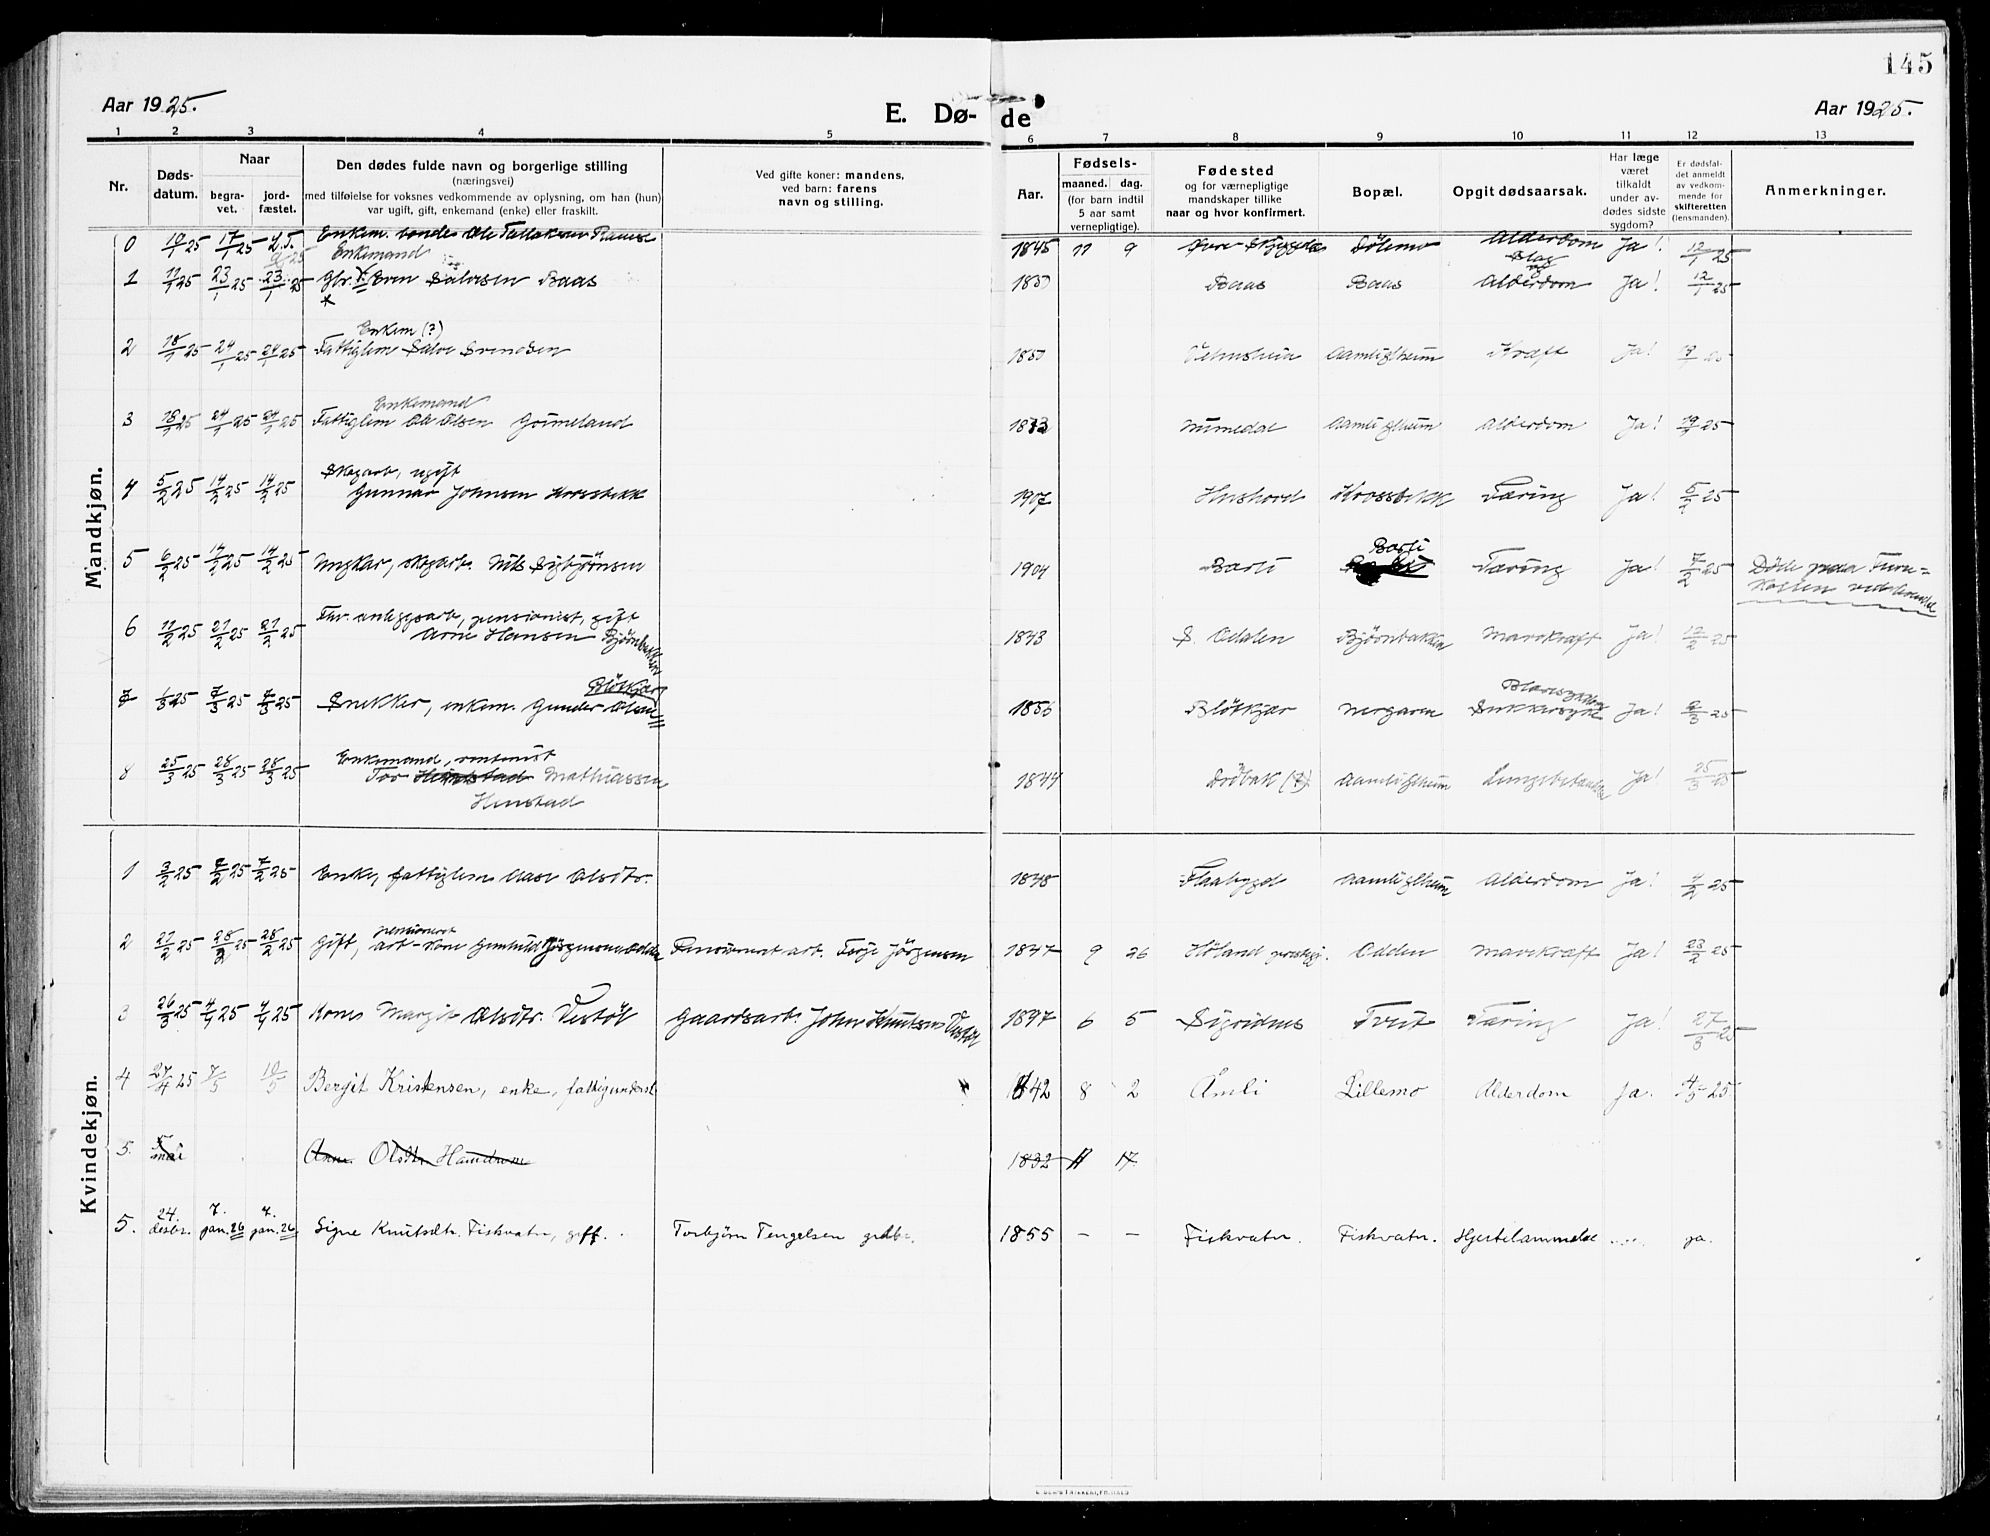 145
Aar 1925.
E. Dø- de
Aar 1925.
1 2 3 4 5 6 7 8 9 10 11 12 13
Nr.
Døds-
datum.
Naar
begra-
vet.
jord-
fæstet.
Den dødes fulde navn og borgerlige stilling
(næringsvei)
med tilføielse for voksnes vedkommende av oplysning, om han (hun)
var ugift, gift, enkemand (enke) eller fraskilt.
Ved gifte koner: mandens,
ved barn: farens
navn og stilling.
Aar.
Fødsels-
maaned. dag.
(for barn indtil
5 aar samt
vernepligtige).
Fødested
og for værnepligtige
mandskaper tillike
naar og hvor konfirmert.
Bopæl.
Opgit dødsaarsak.
Har læge
været
tilkaldt
under av-
dødes sidste
sygdom?
Er dødsfal-
det anmeldt
av vedkom-
mende for
skifteretten
(lensmanden).
Anmerkninger.
Mandkjøn.
0 17/1 25 Enkem. bonde Ole Tallaksen 1845 11 9 Dølemo Alderdom Ja! 12/1 25
Enkemand
Slag
og
1 11/1 25 23/1 25 23/1 25 Even Salvesen Baas Baas Baas Alderdom Ja! 12/1 25
Enkem (?)
2 18/1 25 24/1 25 24/1 25 Fattiglem Salve Svendsen Aamli glheim Kræft Ja!
Enkemand
3 18/1 25 24/1 25 24/1 25 Fattiglem Ole Olsen Grimeland Numedal Aamli glheim Alderdom Ja! 19/1 25
Skogarb, ugift
4 5/2 25 14/2 25 14/2 25 Gunnar Johnsen Krossbekk 1907 Krossbekk Tæring Ja! 5/2 25
Barli
5 6/2 25 14/2 25 14/2 25 Ungkar, skogarb. Nils Sigbjørnsen 1904 Barli Tæring Ja! 7/2 25 Døde paa Furu=
kollen
6 11/2 25 21/2 25 21/2 25 Fhr. anleggsarb, pensionist, gift
Arne Hansen Bjørnbakken 1843 S. Odalen Bjørnbakken Mavekræft Ja! 12/2 25
Bløtkjær
7 1/3 25 7/3 25 7/3 25 Snekker, enkem. Gunder Olsen 1856 Bløtkjær Nergaren Sukkersyke Ja! 2/3 25
8 25/3 25 28/3 25 28/3 25 Enkemand, rentenist
Tor Mathiassen
Henstad 1844 Drøbak (?) Aamli glheim Lungebetændelse Ja! 25/3 25
Kvindekjøn.
1 3/2 25 7/2 25 7/2 25 Enke, fattiglem Aase Olsdtr. 1848 Flaabygd Aamli glheim Alderdom Ja! 4/2 25
pensionert
2 22/2 25 28/2 25 28/2 25 Gift, arb-kone Gunhild Jørgensen Odden Pensionert arb. Terje Jörgensen 1847 9 26 Høland prestegj. Odden Mavekræft Ja! 23/2 25
3 26/3 25 4/4 25 4/4 25 Kone Margit Olsdtr. Vestøl Gaardsarb. John Knutsen Vestøl 1897 6 5 Sigridnes Tveit Tæring Ja! 27/3 25
4 27/4 25 7/5 10/5 Bergit Kristensen, enke, fattigunderst 1842 8 2 Åmli Lillemo Alderdom Ja. 4/5 25
5. mai Anne Olsdtr. Hamdrem 1832 11 17
5. 24. desbr. 7. jan. 26 7. jan. 26 Signe Knutsdtr. Fiskvatn, gift. Torbjörn Tengelsen grdbr. 1855 - - Fiskvatn. Fiskvatn. Hjertelammelse ja.